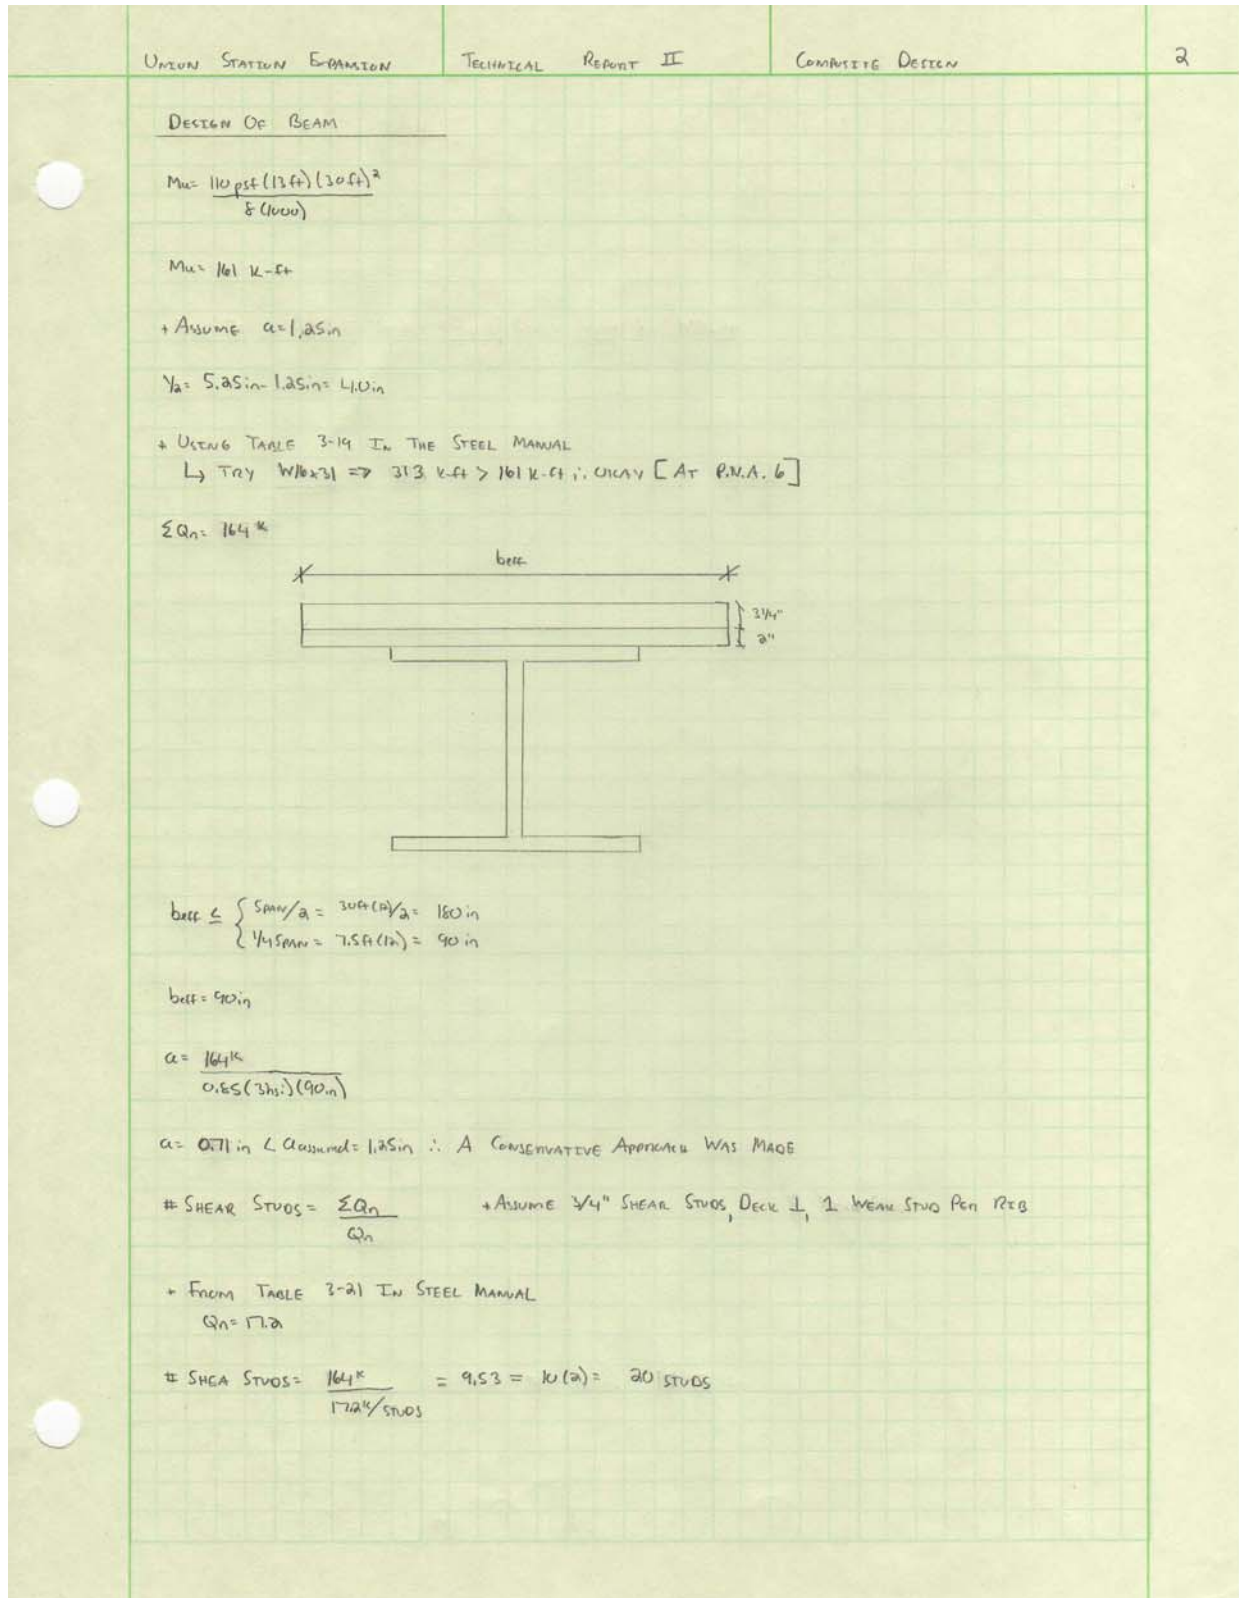 UNION STATION EXPANSION TECHNICAL REPORT II COMPOSITE DESIGN 2
DESIGN OF BEAM
Mu= 110 psf (13 ft) (30 ft)²
8 (1000)
Mu= 161 k-ft
+ ASSUME a=1.25in
Y2= 5.25in-1.25in= 4.0in
+ USING TABLE 3-19 IN THE STEEL MANUAL
↳ TRY W16x31 => 313 k-ft > 161 k-ft ∴ OKAY [AT P.N.A. 6]
ΣQn= 164 k
beff
3 1/4"
2"
beff ≤ { SPAN/2 = 30ft(12)/2= 180 in
1/4 SPAN = 7.5ft(12) = 90 in
beff= 90in
a= 164k
0.85(3ksi)(90in)
a= 0.71 in < a assumed= 1.25in ∴ A CONSERVATIVE APPROACH WAS MADE
# SHEAR STUDS= ΣQn + ASSUME 3/4" SHEAR STUDS, DECK ⊥, 1 WEAK STUD PER RIB
Qn
+ FROM TABLE 3-21 IN STEEL MANUAL
Qn= 17.2
# SHEA STUDS= 164k = 9.53 = 10(2)= 20 STUDS
17.2k/STUDS